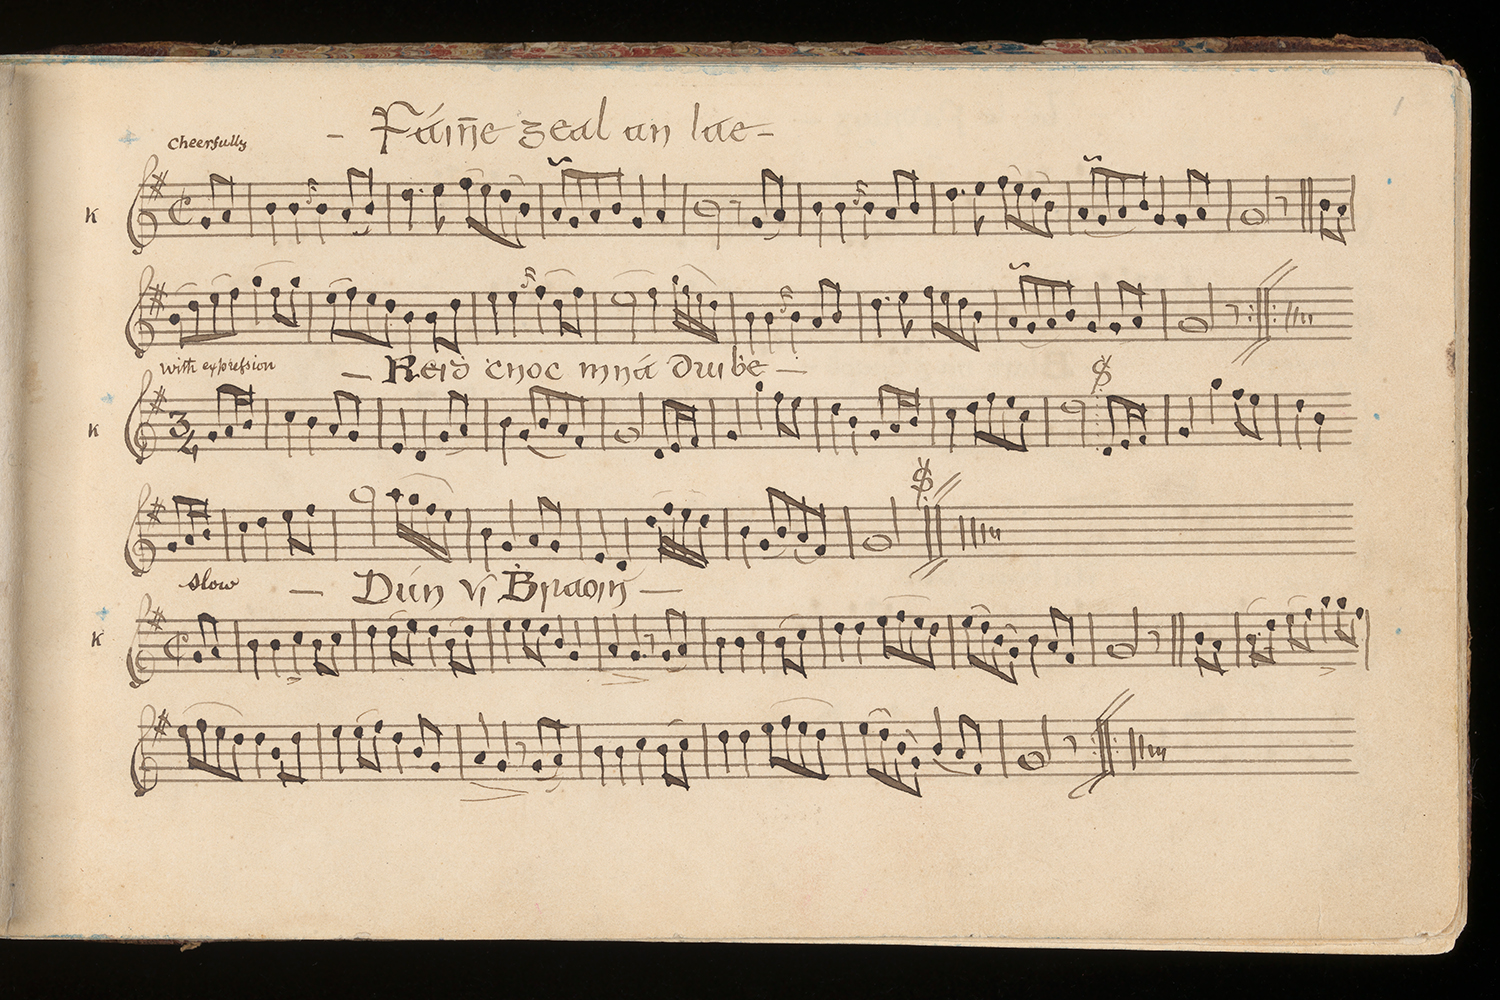 Cheerfully
- Fáiñe geal an lae -
K
with expression
- Reiḋ ċnoc mná duiḃe -
K
3/4
slow
- Dún Ví Bhraoin -
K